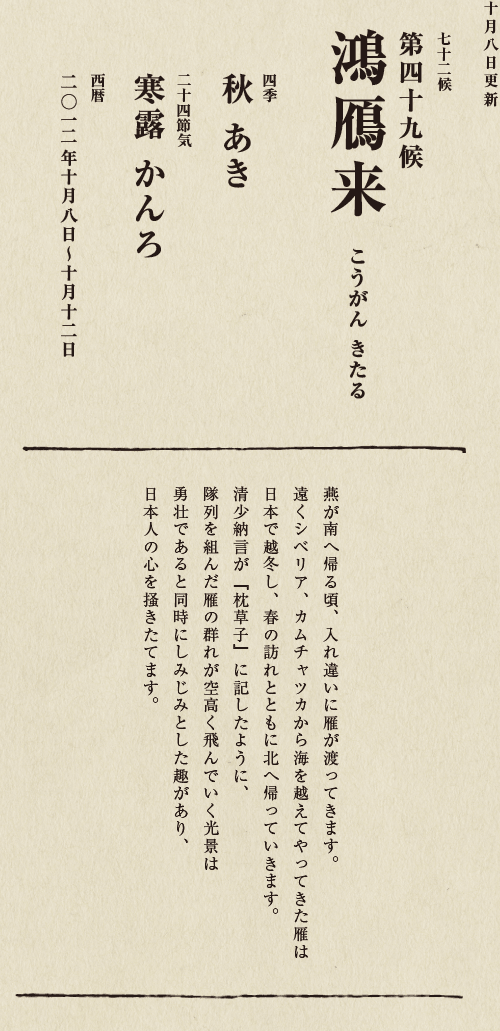 十月八日更新
七十二候
第四十九候
鴻鳫来 こうがん きたる
四季
秋 あき
二十四節気
寒露 かんろ
西暦
二〇一二年十月八日〜十月十二日
燕が南へ帰る頃、入れ違いに雁が渡ってきます。
遠くシベリア、カムチャツカから海を越えてやってきた雁は
日本で越冬し、春の訪れとともに北へ帰っていきます。
清少納言が『枕草子』に記したように、
隊列を組んだ雁の群れが空高く飛んでいく光景は
勇壮であると同時にしみじみとした趣があり、
日本人の心を掻きたてます。